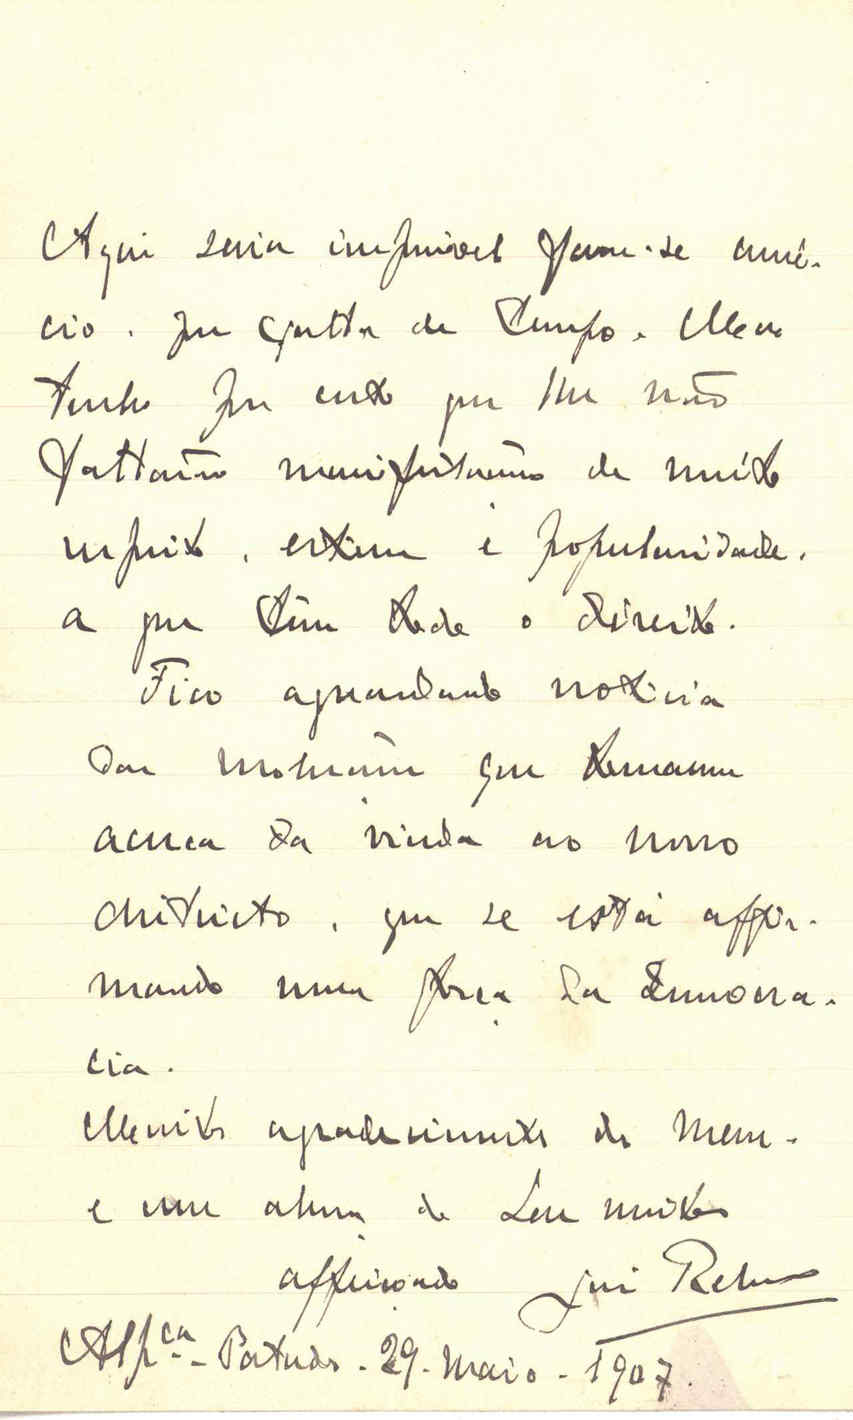 Aqui seria impossivel fazer-se comi-
cio, por falta de tempo. Mas
tenho por certo que lhe não
faltarão manifestações de muito
respeito, estima e popularidade,
a que tem todo o direito.
Fico aguardando noticia
das que tomarem
acerca da vinda ao nosso
districto, que se está affir-
mando uma força da democra-
cia.
Muitos agradecimentos de
e um abraço do seu muito
affeiçoado José Relvas
Alp.ça - Patudos - 29 - Maio - 1907.